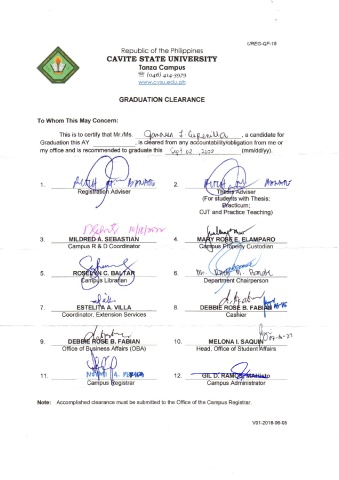 UREG-QF-19
Republic of the Philippines
CAVITE STATE UNIVERSITY
Tanza Campus
☎ (046) 414-3979
www.cvsu.edu.ph
GRADUATION CLEARANCE
To Whom This May Concern:
This is to certify that Mr./Ms. , a candidate for
Graduation this AY , is cleared from any accountability/obligation from me or
my office and is recommended to graduate this (mm/dd/yy).
1. 2.
Registration Adviser Thesis Adviser
(For students with Thesis;
Practicum;
OJT and Practice Teaching)
3. MILDRED A. SEBASTIAN 4. MARY ROSE E. ELAMPARO
Campus R & D Coordinator Campus Property Custodian
5. ROSELYN C. BALTAR 6.
Campus Librarian Department Chairperson
7. ESTELITA A. VILLA 8. DEBBIE ROSE B. FABIAN
Coordinator, Extension Services Cashier
9. DEBBIE ROSE B. FABIAN 10. MELONA I. SAQUIN
Office of Business Affairs (OBA) Head, Office of Student Affairs
11. 12. GIL D. RAMOS
Campus Registrar Campus Administrator
Note: Accomplished clearance must be submitted to the Office of the Campus Registrar.
V01-2018-06-05